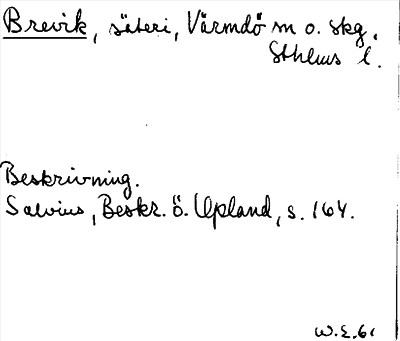 Brevik, säteri, Värmdö sn o. skg,
Sthlms l.
Beskrivning.
Salvius, Beskr. ö. Upland, s. 164.
W.E. 61